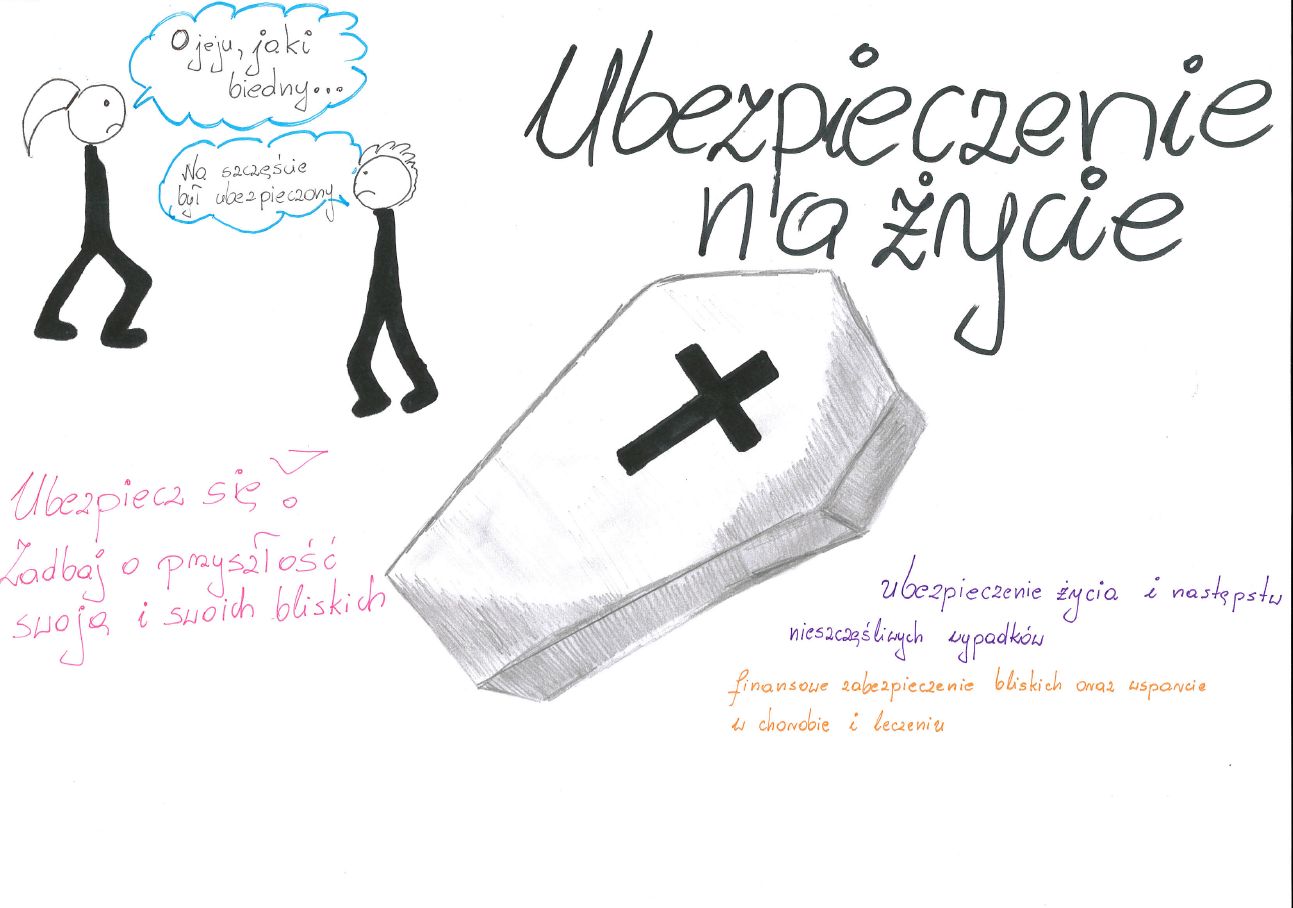 O jeju, jaki
biedny...
Na szczęście
był ubezpieczony
Ubezpieczenie
na życie
Ubezpiecz się!
Zadbaj o przyszłość
swoją i swoich bliskich
ubezpieczenie życia i następstw
nieszczęśliwych wypadków
finansowe zabezpieczenie bliskich oraz wsparcie
w chorobie i leczeniu